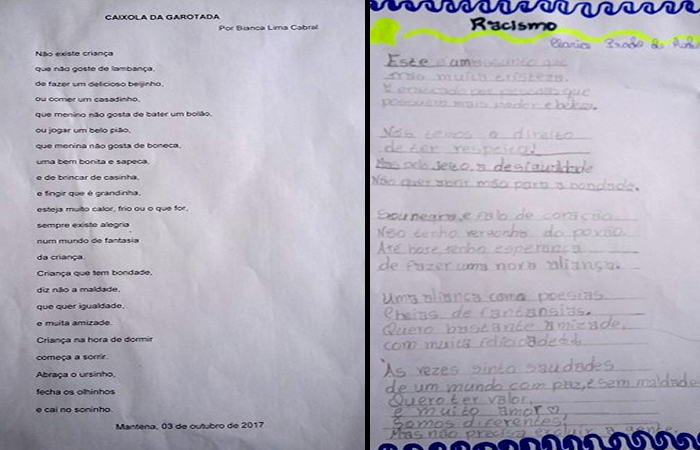 CAIXOLA DA GAROTADA
Por Bianca Lima Cabral
Não existe criança
que não goste de lambança,
de fazer um delicioso beijinho,
ou comer um casadinho,
que menino não gosta de bater um bolão,
ou jogar um belo pião,
que menina não gosta de boneca,
uma bem bonita e sapeca,
e de brincar de casinha,
e fingir que é grandinha,
esteja muito calor, frio ou o que for,
sempre existe alegria
num mundo de fantasia
da criança.
Criança que tem bondade,
diz não a maldade,
que quer igualdade,
e muita amizade.
Criança na hora de dormir
começa a sorrir.
Abraça o ursinho,
fecha os olhinhos
e cai no soninho.
Mantena, 03 de outubro de 2017
Racismo
Este é um assunto que
traz muita tristeza.
que
possuem mais poder e beleza.
Nós temos o direito
de ter respeito!
Mas pelo jeito, a desigualdade
Não quer abrir mão para a bondade.
Sou negra, e falo de coração
Não tenho vergonha do povão
Até hoje tenho esperança
de fazer uma nova aliança.
Uma aliança como poesias
Cheias de fantansias.
Quero bastante amizade,
com muita felicidade!!
Às vezes sinto saudades
de um mundo com paz, e sem maldades
Quero ter valor,
e muito amor♡,
Somos diferentes,
Mas não precisa excluir a gente.